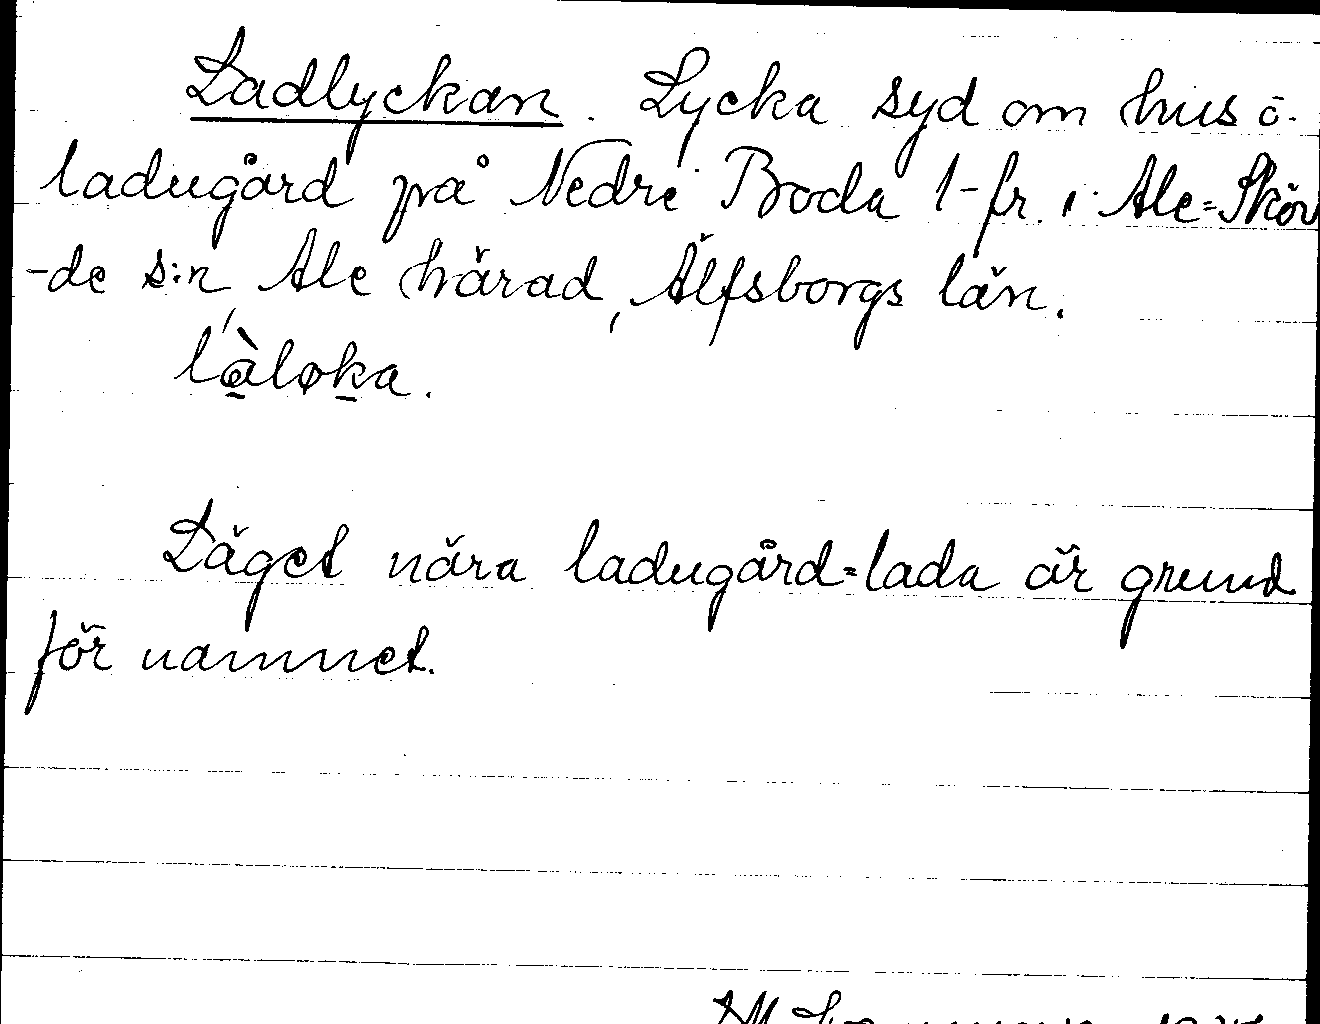 Ladlyckan. Lycka syd om hus o.
ladugård på Nedre Boda 1-fr. i Ale-Sköv
-de s:n, Ale härad, Älfsborgs län.
l̀aloka.
Läget nära ladugård-lada är grund
för namnet.